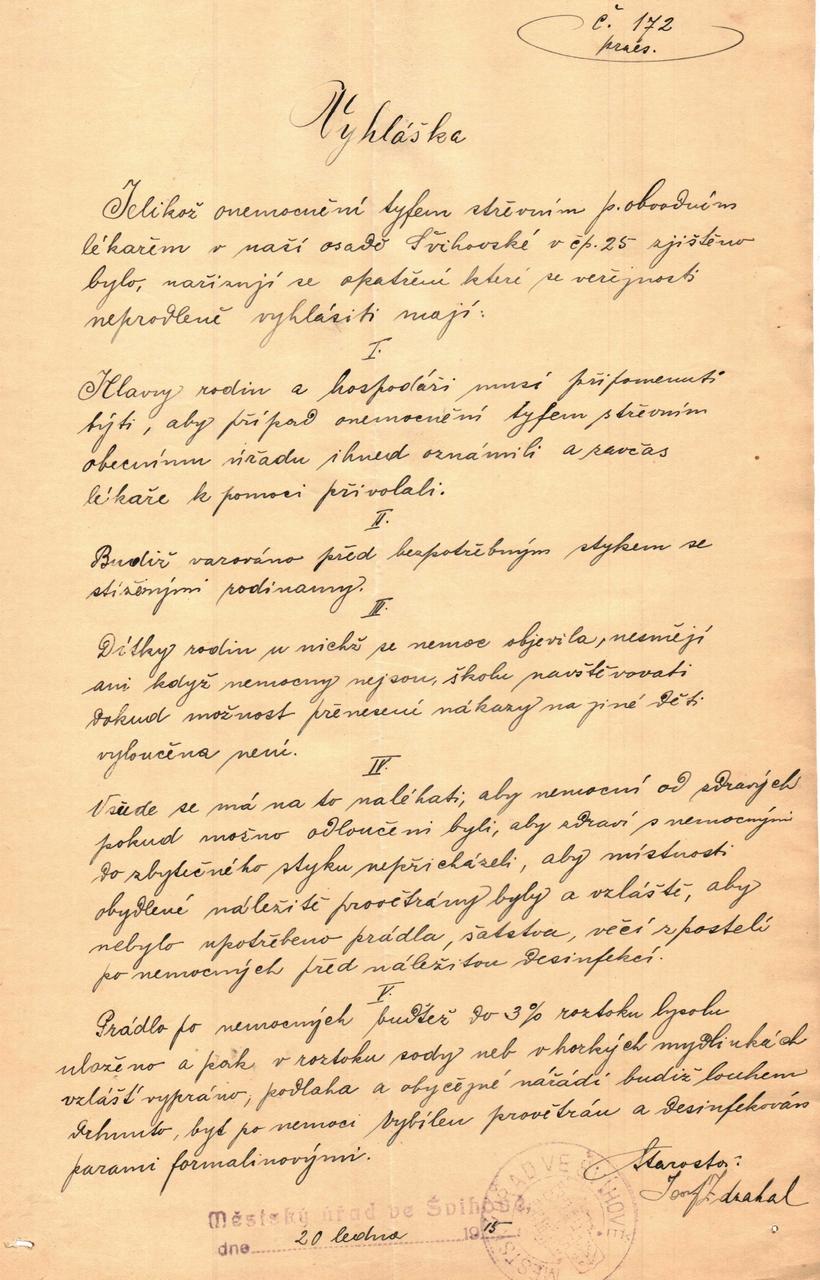 č. 172
praes.
Vyhláška
Jelikož onemocnění tyfem střevním p. obvodním
lékařem v naší osadě Švihovské v čp. 25 zjištěno
bylo, nařizují se opatření které se veřejnosti
neprodleně vyhlásiti mají:
I.
Hlavy rodin a hospodáři musí připomenuti
býti, aby případ onemocnění tyfem střevním
obecnímu úřadu ihned oznámili a zavčas
lékaře k pomoci přivolali.
II.
Budiž varováno před bezpotřebným stykem se
stiženými rodinamy.
III.
Dítky rodin u nichž se nemoc objevila, nesmějí
ani když nemocny nejsou, školu navštěvovati
dokud možnost přenesení nákazy na jiné děti
vyloučena není.
IV.
Všude se má na to naléhati, aby nemocní od zdravých
pokud možno odloučeni byli, aby zdraví s nemocnými
do zbytečného styku nepřicházeli, aby místnosti
obydlené náležitě provětrány byly a vzláště, aby
nebylo upotřebeno prádla, šatstva, věcí z postelí
po nemocných před náležitou desinfekcí.
V.
Prádlo po nemocných buďtež do 3% roztoku lysolu
uloženo a pak v roztoku sody neb v horkých mydlinkách
vzlášť vypráno, podlaha a obyčejné nářádí budiž louhem
drhnuto, byt po nemoci vybílen provětrán a desinfekován
parami formalinovými.
Starosta:
Zdrahal
Městský úřad ve Švihově,
dne 20 ledna 1915